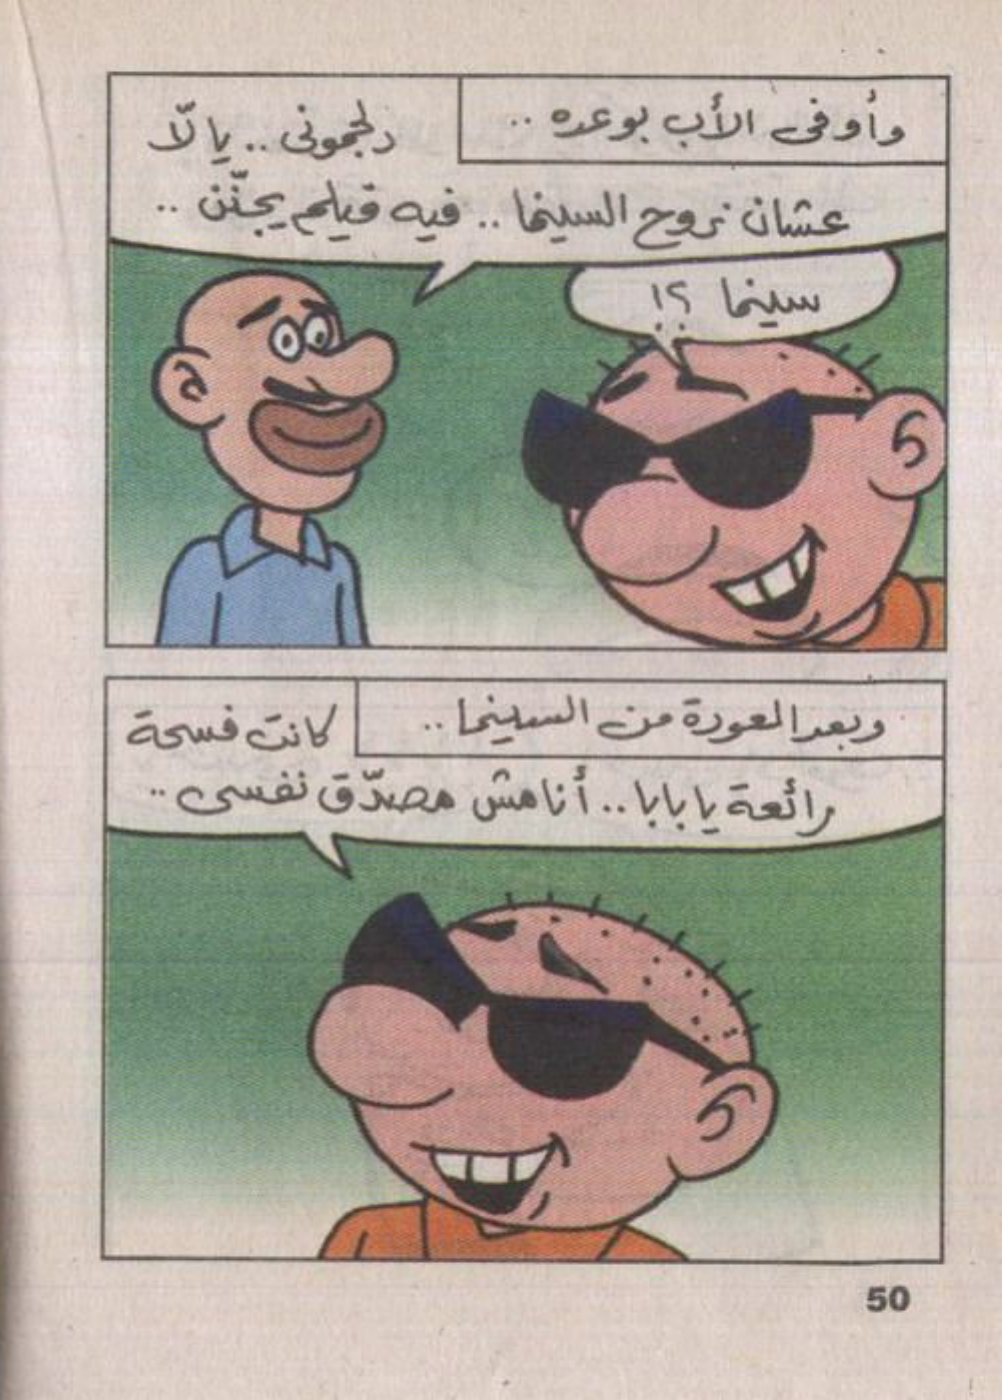 وأوفى الأب بوعده ..
دلجمونى .. يا لّا
عشان نروح السينما .. فيه فيلم يجنّن ..
سينما ؟!
وبعد العودة من السينما ..
كانت فسحة
رائعة يا بابا .. أنا مش مصدّق نفسى ..
50